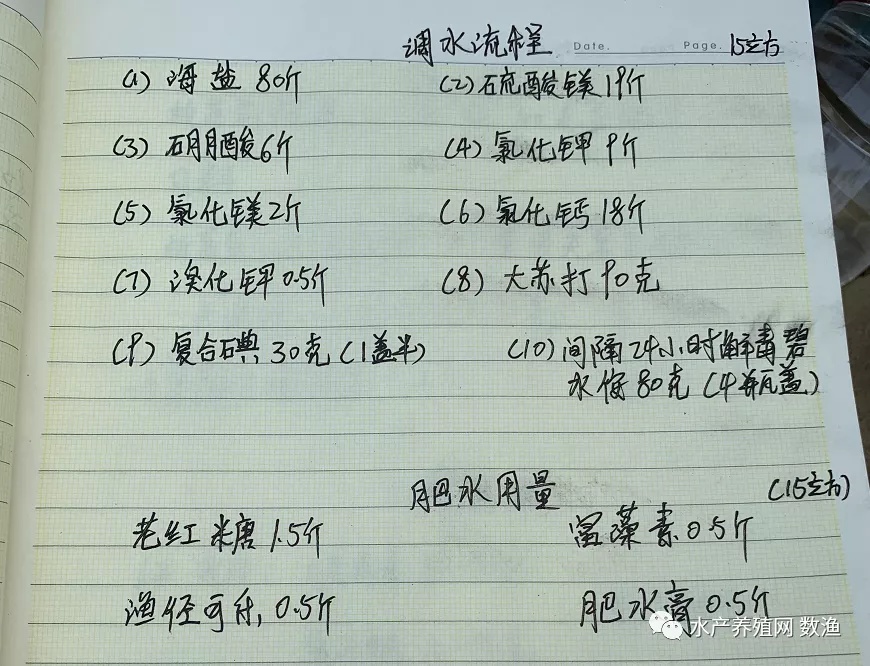 调水流程 Date. Page. 15立方
(1) 海盐 80斤 (2) 硫酸镁 19斤
(3) 硼酸 6斤 (4) 氯化钾 9斤
(5) 氯化镁 2斤 (6) 氯化钙 18斤
(7) 溴化钾 0.5斤 (8) 大苏打 90克
(9) 复合碘 30克 (1盖半) (10) 间隔24小时解毒碧
水保 80克 (4瓶盖)
肥水用量 (15立方)
老红糖 1.5斤 富藻素 0.5斤
渔经可行, 0.5斤 肥水膏 0.5斤
水产养殖网 数渔